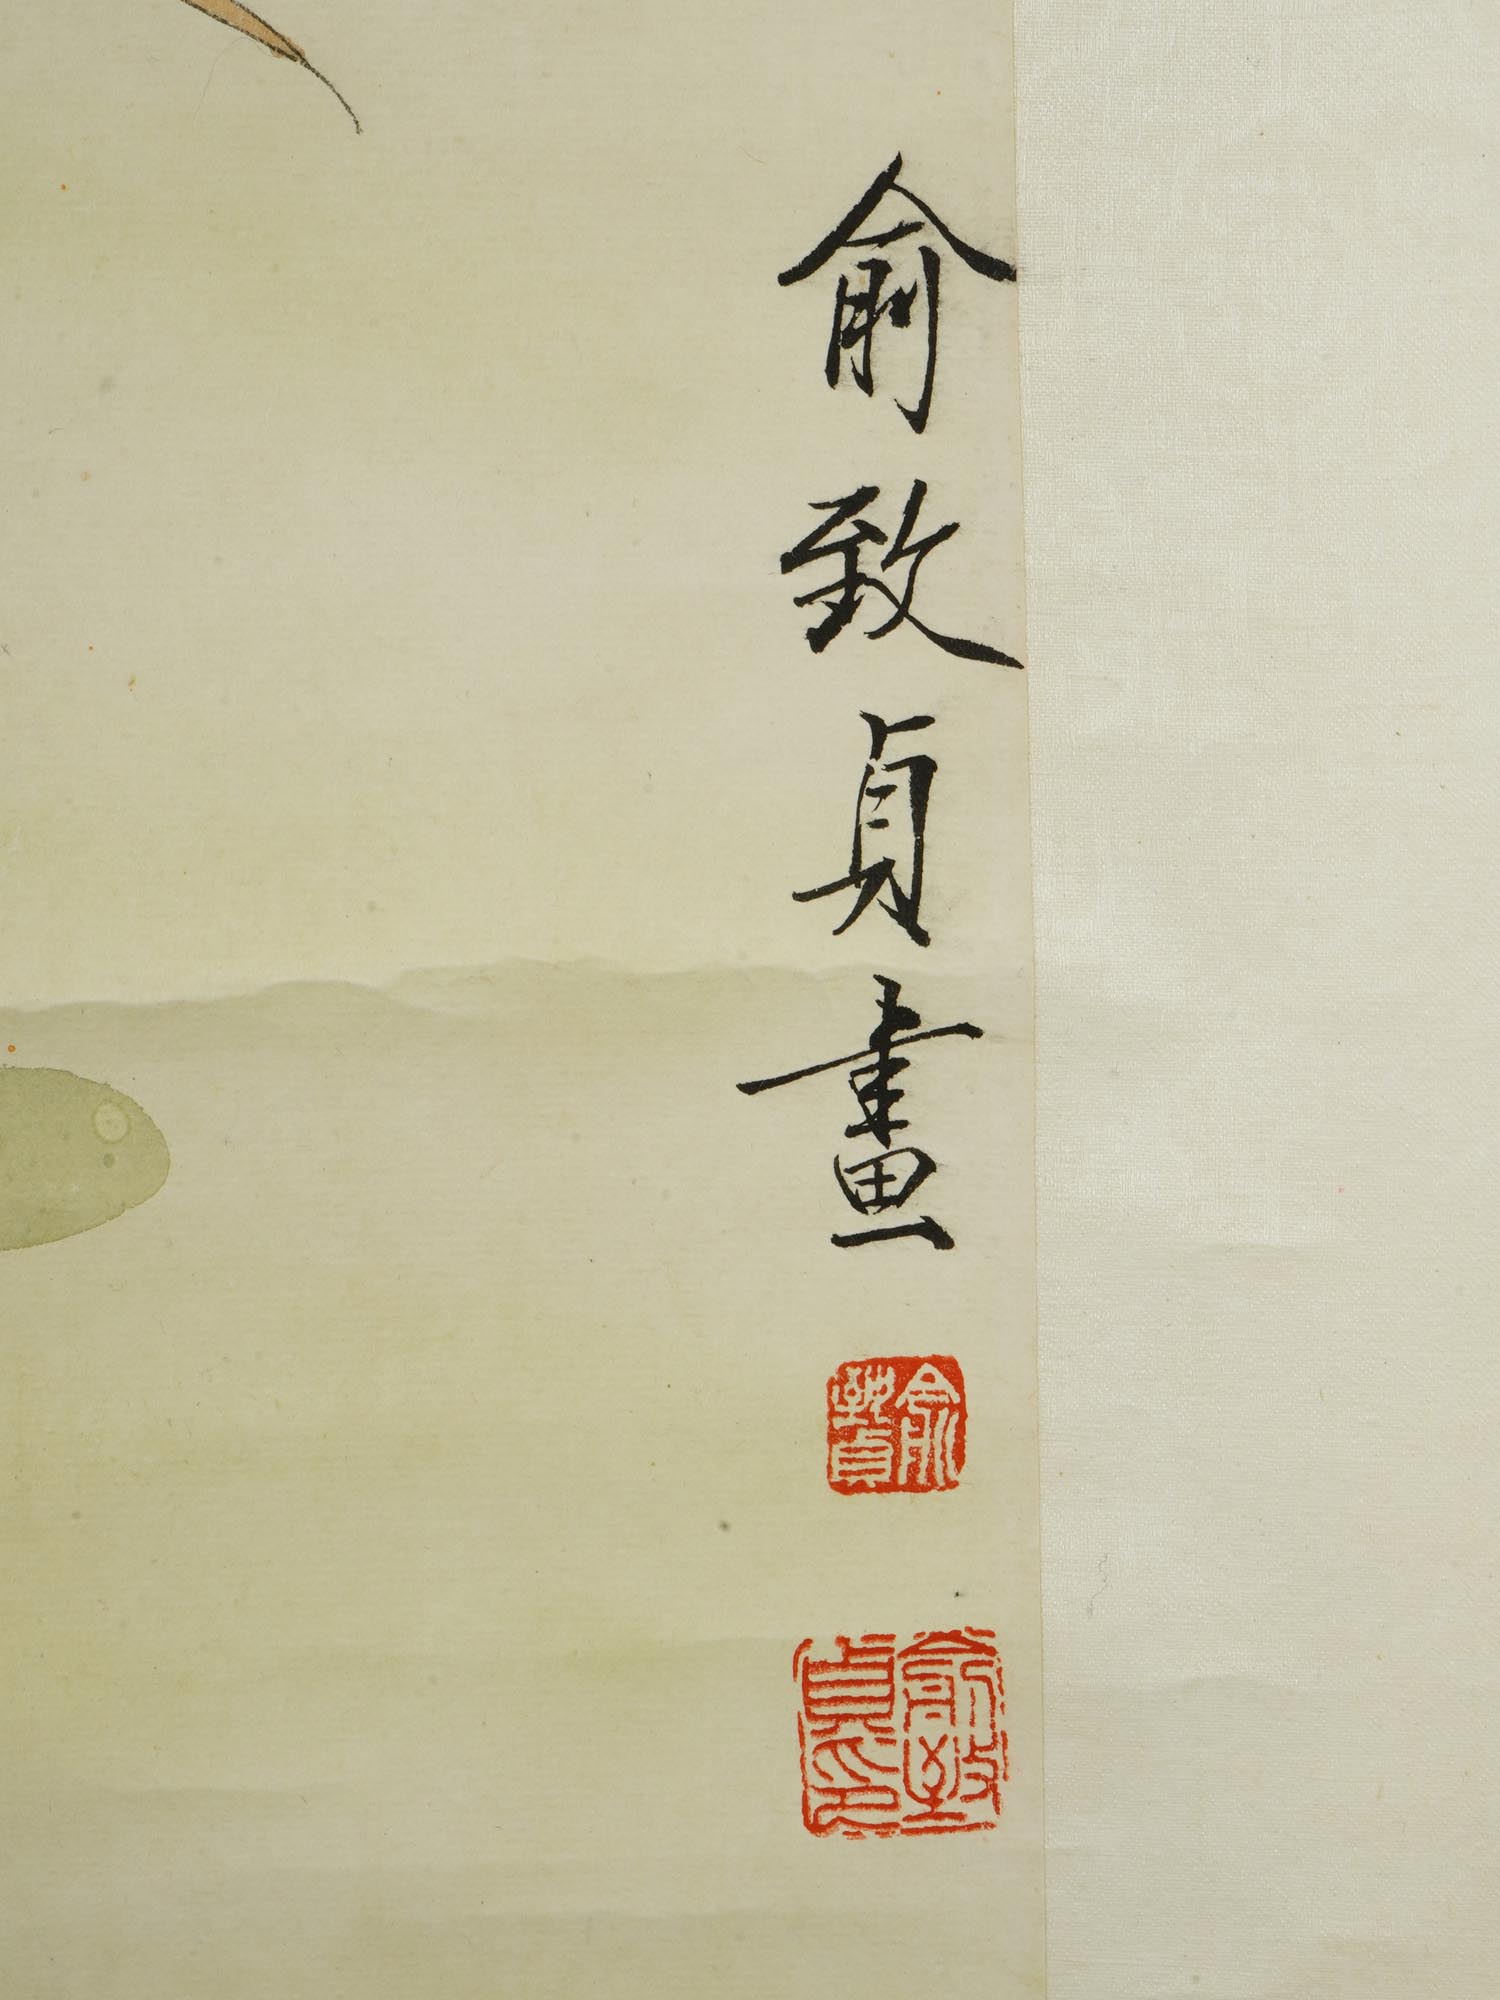 俞致貞畫
俞致貞
俞致貞印